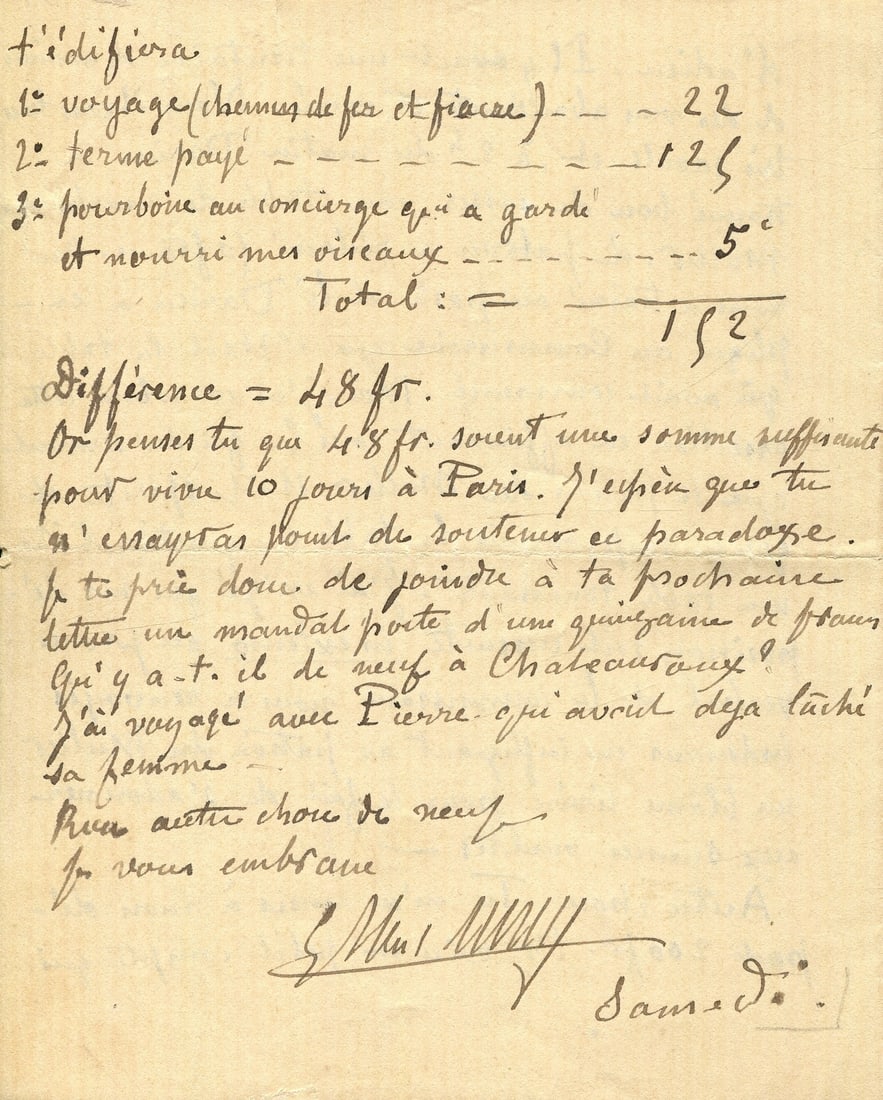 t'édifiera
1º voyage (chemins de fer et fiacre) - - - 22
2º terme payé - - - - - - - - - 125
3º pourboire au concierge qui a gardé
et nourri mes oiseaux - - - - - - - - - 5
Total : = 152
Différence = 48 fr.
Or penses tu que 48 fr. soient une somme suffisante
pour vivre 10 jours à Paris. J'espère que tu
n'essayeras point de soutenir ce paradoxe.
Je te prie donc de joindre à ta prochaine
lettre un mandat poste d'une quinzaine de francs
Qu'y a-t-il de neuf à Chateauroux?
J'ai voyagé avec Pierre qui avait deja lâché
sa femme -
Rien autre chose de neuf
Je vous embrasse
Samedi.